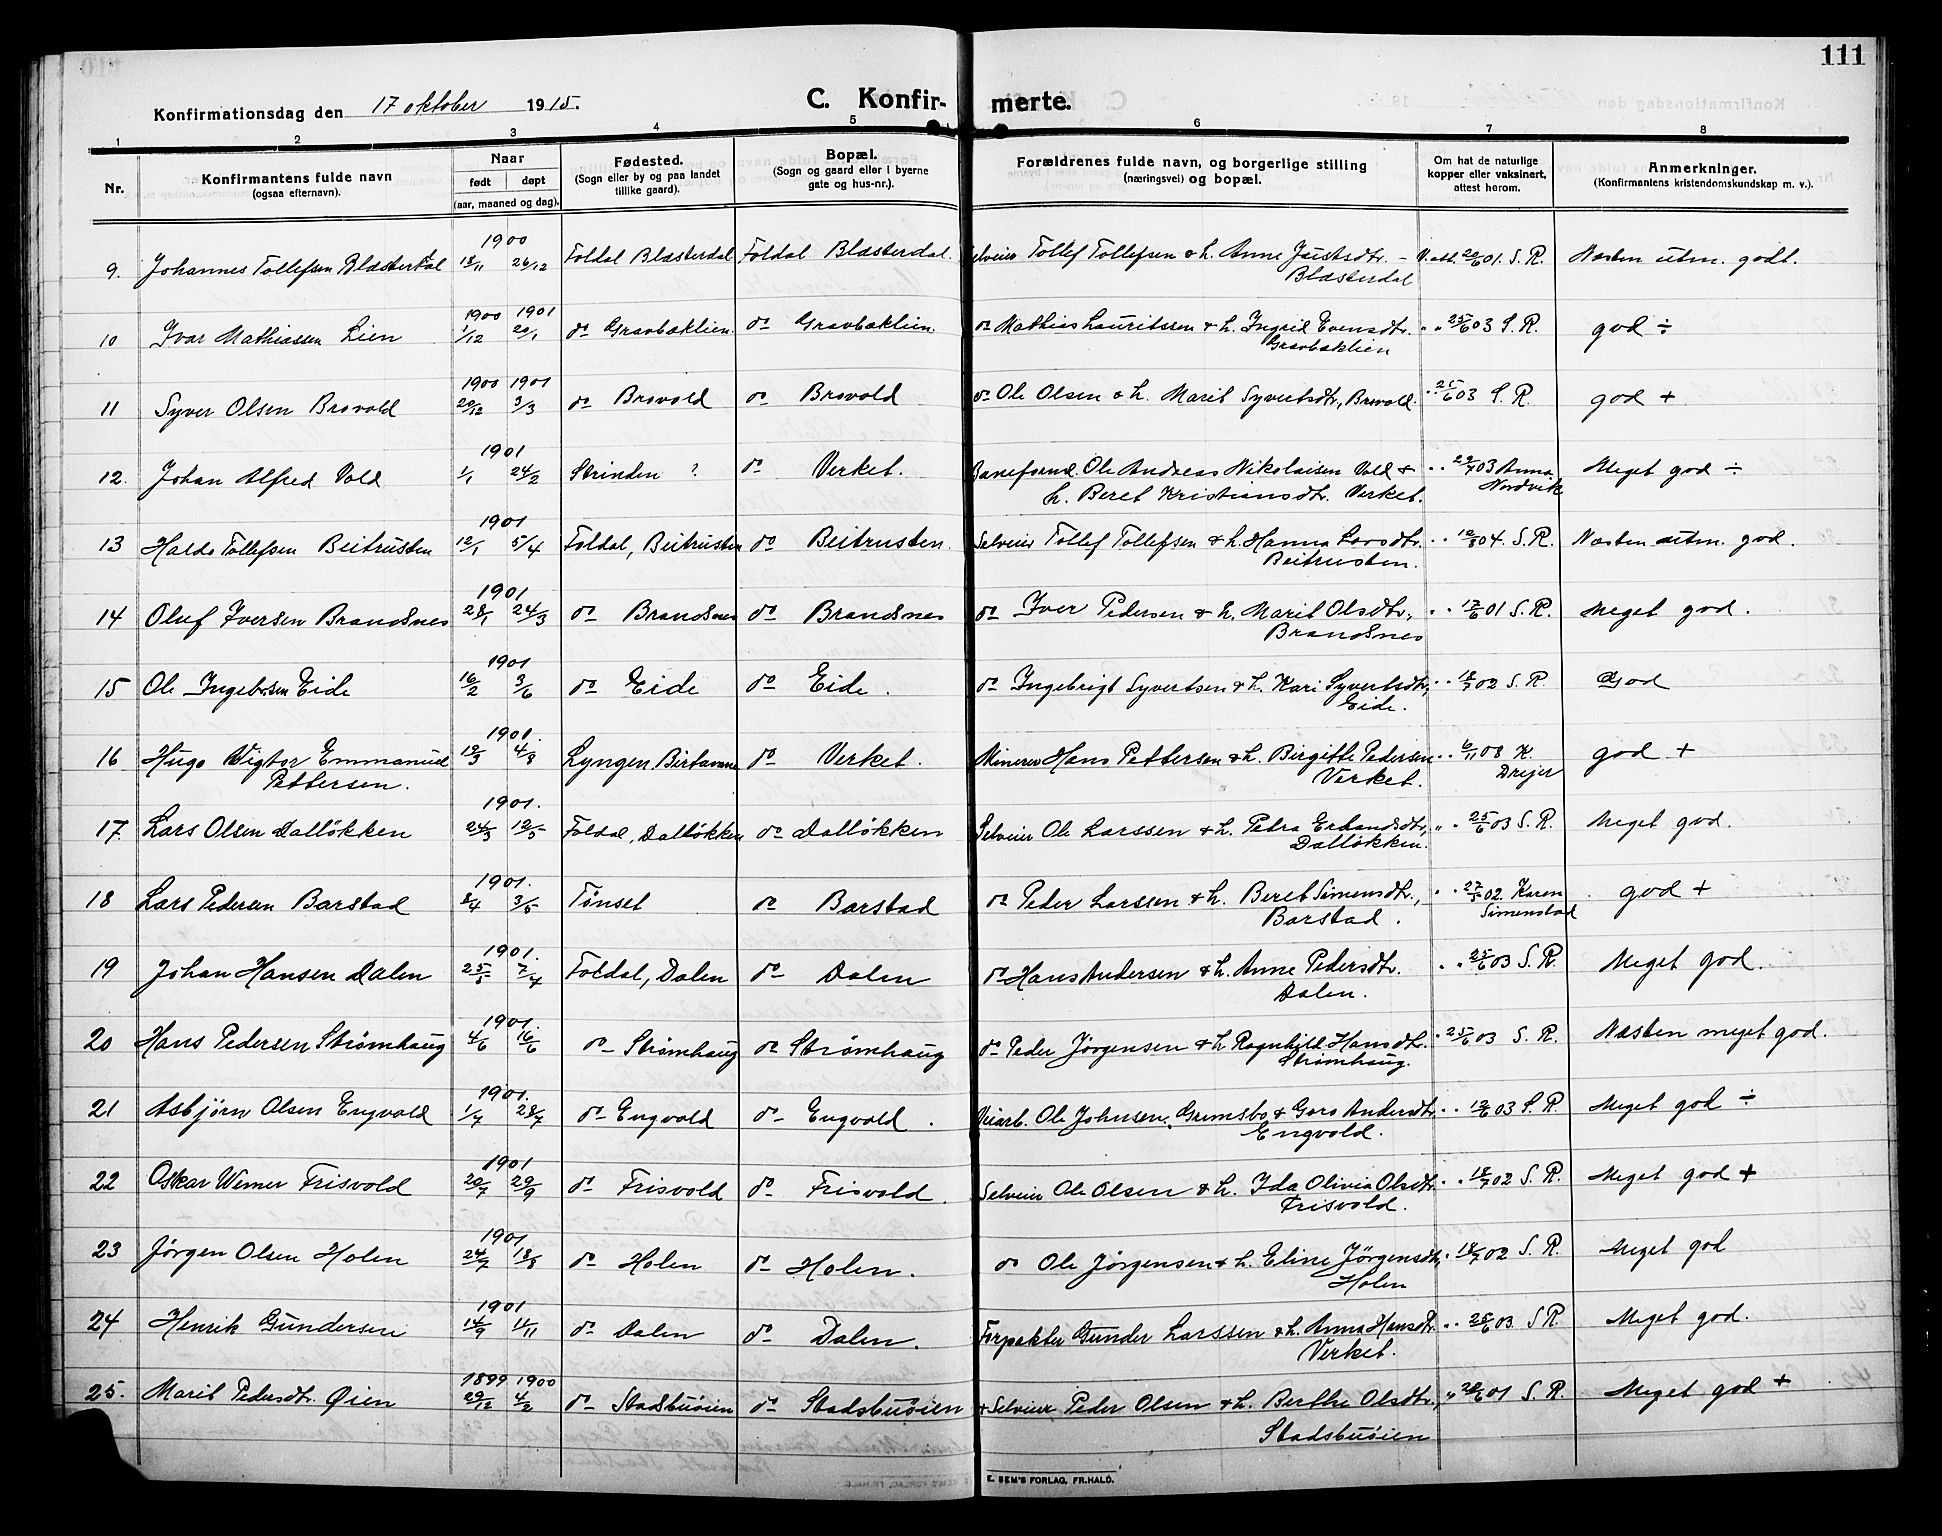 111
Konfirmationsdag den 17 oktober 1915.
C. Konfir- merte.
1 2 3 4 5 6 7 8
Nr.
Konfirmantens fulde navn
(ogsaa efternavn).
Naar
født døpt
(aar, maaned og dag).
Fødested.
(Sogn eller by og paa landet
tillike gaard).
Bopæl.
(Sogn og gaard eller i byerne
gate og hus-nr.).
Forældrenes fulde navn, og borgerlige stilling
(næringsvei) og bopæl.
Om hat de naturlige
kopper eller vaksinert,
attest herom.
Anmerkninger.
(Konfirmantens kristendomskundskap m. v.).
1900
9. Johannes Tollefsen Blæsterdal 18/11 26/12 Foldal Blæsterdal Foldal Blæsterdal. Selveier Tollef Tollefsen & h. Anne Joistsdtr. - V. att. 20/6 01. S. R. Næsten utm. godt.
Blæsterdal
1900 1901
10 Ivar Mathiassen Lien 1/12 20/1 do Gravbæklien. do Gravbæklien. do Mathias Lauritssen & h. Ingrid Evensdtr. " " 25/6 03 S. R. god ÷
Gravbæklien
1900 1901
11 Syver Olsen Brovold 20/12 3/3 do Brovold do Brovold do Ole Olsen & h. Marit Syvertsdtr., Brovold. " " 25/6 03 S. R. god +
1901
12. Johan Alfred Vold 1/1 24/2 Strinden ? do Verket. Baneformd. Ole Andreas Nikolaisen Vold & " " 29/7 03 Anna Meget god ÷
h. Beret Kristiansdtr. Verket. Nordvik
1901
13 Haldo Tollefsen Beitrusten 12/1 5/4 Foldal, Beitrusten do Beitrusten. Selveier Tollef Tollefsen & h. Hanna Larsdtr. " " 10/8 04. S. R. Næsten utm. god.
Beitrusten.
1901
14 Oluf Iversen Brandsnes 28/1 24/3 do Brandsnes do Brandsnes do Iver Pedersen & h. Marit Olsdtr., " " 17/6 01 S. R. Meget god.
Brandsnes
1901
15 Ole Ingebr.sen Eide 16/2 3/6 do Eide do Eide. do Ingebrigt Syvertsen & h. Kari Syvertsdtr, " " 18/7 02 S. R. God
Eide.
1901.
16 Hugo Vigtor Emmanuel 19/3 4/8 Lyngen, Birtavarre do Verket. Minerer Hans Pettersen & h. Birgitte Pedersen " " 6/11 08 K. god +
Pettersen. Verket. Dreyer
1901.
17. Lars Olsen Dalløkken 24/3 12/5 Foldal, Dalløkken do Dalløkken Selveier Ole Larssen & h. Petra Erlandsdtr, " " 25/6 03 S. R. Meget god.
Dalløkken.
1901.
18 Lars Pedersen Barstad 8/4 3/5 Tønset do Barstad do Peder Larssen & h. Beret Simensdtr., " " 27/5 02. Karen god +
Barstad. Simenstad
1901.
19 Johan Hansen Dalen 25/5 7/4 Foldal, Dalen do Dalen do Hans Andersen & h. Anne Pedersdtr. " " 25/6 03 S. R. Meget god.
Dalen.
1901.
20 Hans Pedersen Strømhaug 4/6 16/6 do Strømhaug do Strømhaug do Peder Jørgensen & h Ragnhild Hansdtr. " 25/6 03 S. R. Næsten meget god.
Strømhaug.
1901.
21 Asbjörn Olsen Engvold 1/7 28/7 do Engvold do Engvold. Veiarb. Ole Johnsen Grimsbo & Goro Andersdtr. " " 12/6 03 S. R. Meget god ÷
Engvold.
1901
22 Oskar Werner Frisvold 20/7 29/9 do Frisvold do Frisvold. Selveier Ole Olsen & h. Ida Olivia Olsdtr. " " 18/7 02 S. R. Meget god +
Frisvold.
1901
23 Jørgen Olsen Holen 24/7 18/8 do Holen do Holen. do Ole Jørgensen & h. Eline Jörgensdtr, " 18/7 02 S. R. Meget god
Holen
1901
24 Henrik Gundersen 14/9 11/11 do Dalen do Dalen. Forpakter Gunder Larssen & h. Anna Hansdtr. " " 26/6 03. S R. Meget god.
Verket.
1899 1900
25. Marit Pedersdtr. Øien 29/12 4/2 do Stadsbuøien do Stadsbuøien + Selveier Peder Olsen & h. Berthe Olsdtr., " 20/6 01 S. R. Meget god +
Stadsbuøien
E. SEM'S FORLAG, FR.HALD.